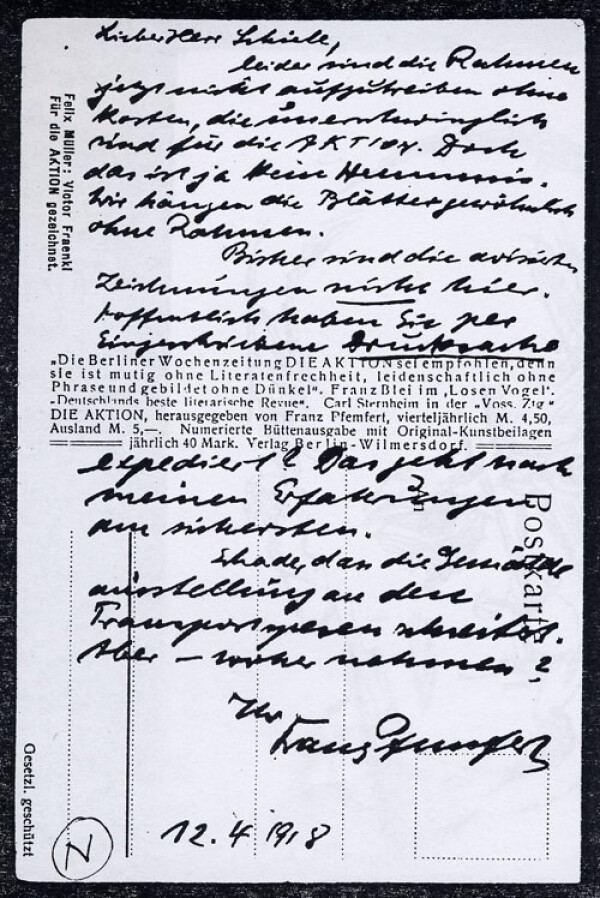 Lieber Herr Schiele,
leider sind die Rahmen
jetzt nicht aufzutreiben ohne
Kosten, die unerschwinglich
sind für die AKTION. Doch
das ist ja kein Hemmnis.
Wir hängen die Blätter gewöhnlich
ohne Rahmen.
Bisher sind die avisierten
Zeichnungen nicht hier.
Hoffentlich haben Sie per
Eingeschriebene Drucksache
„Die Berliner Wochenzeitung DIE AKTION sei empfohlen, denn
sie ist mutig ohne Literatenfrechheit, leidenschaftlich ohne
Phrase und gebildet ohne Dünkel". Franz Blei im „Losen Vogel".
„Deutschlands beste literarische Revue". Carl Sternheim in der „Voss. Ztg."
DIE AKTION, herausgegeben von Franz Pfemfert, vierteljährlich M. 4,50,
Ausland M. 5,—. Numerierte Büttenausgabe mit Original-Kunstbeilagen
jährlich 40 Mark. Verlag Berlin-Wilmersdorf.
expediert? Das geht nach
meinen Erfahrungen
am sichersten.
Schade, das die Gemälde
ausstellung an den
Transportspesen scheitert.
Aber — woher nehmen?
Ihr
Franz Pfemfert
12. 4 1918
Felix Müller: Victor Fraenkl
Für die AKTION gezeichnet.
Postkarte
Gesetzl. geschützt
Z